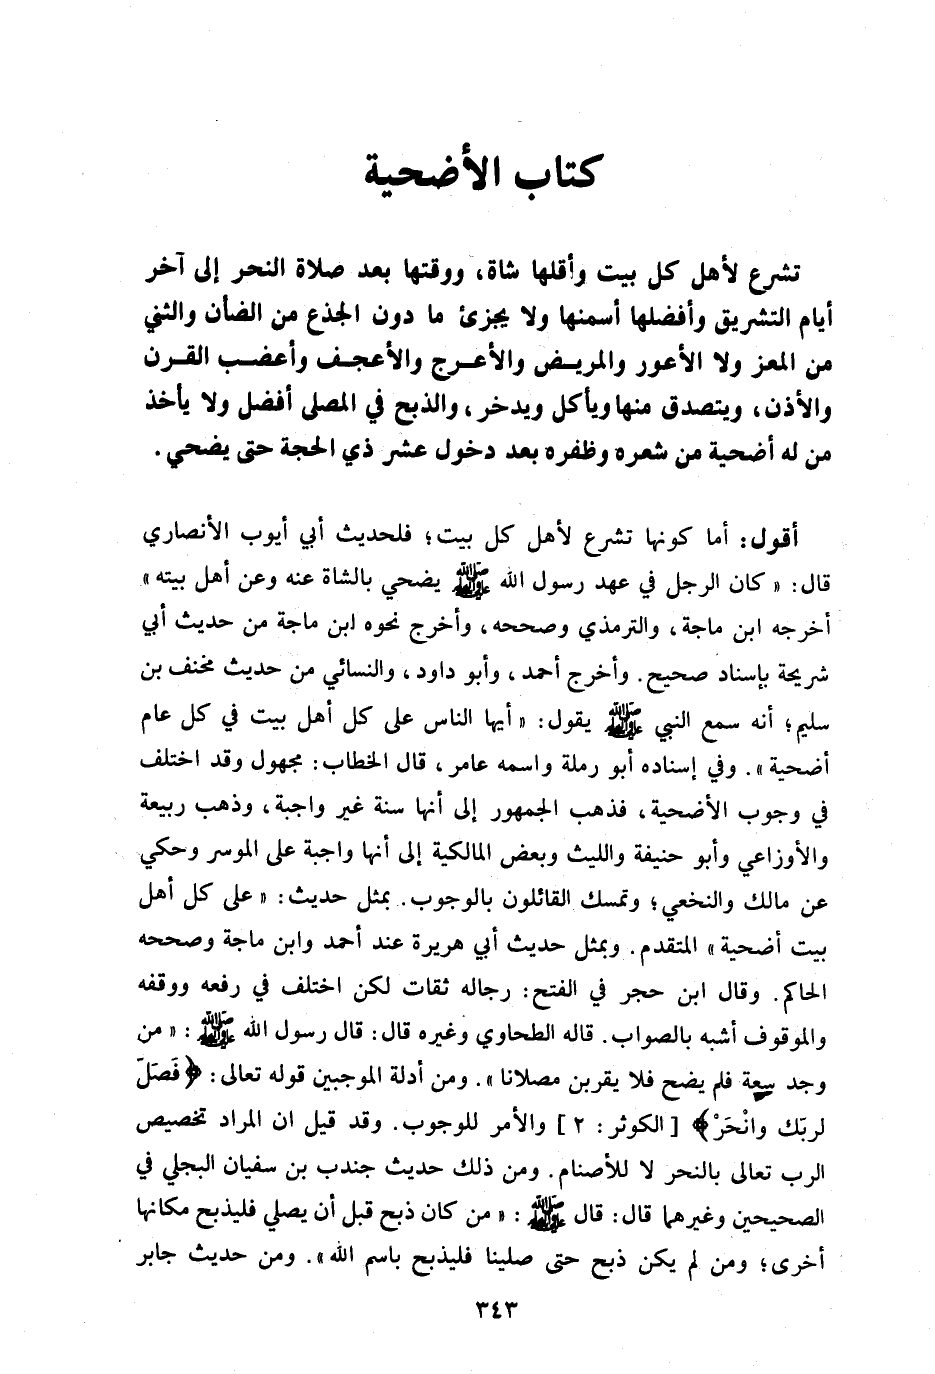 كتاب الأضحية
تشرع لأهل كل بيت وأقلها شاة، ووقتها بعد صلاة النحر إلى آخر
أيام التشريق وأفضلها أسمنها ولا يجزئ ما دون الجذع من الضأن والثني
من المعز ولا الأعور والمريض والأعرج والأعجف وأعضب القرن
والأذن، ويتصدق منها ويأكل ويدخر، والذبح في المصلى أفضل ولا يأخذ
من له أضحية من شعره وظفره بعد دخول عشر ذي الحجة حتى يضحي.
أقول: أما كونها تشرع لأهل كل بيت؛ فلحديث أبي أيوب الأنصاري
قال: «كان الرجل في عهد رسول الله ﷺ يضحي بالشاة عنه وعن أهل بيته»
أخرجه ابن ماجة، والترمذي وصححه، وأخرج نحوه ابن ماجة من حديث أبي
شريحة بإسناد صحيح. وأخرج أحمد، وأبو داود، والنسائي من حديث مخنف بن
سليم؛ أنه سمع النبي ﷺ يقول: «أيها الناس على كل أهل بيت في كل عام
أضحية». وفي إسناده أبو رملة واسمه عامر، قال الخطاب: مجهول وقد اختلف
في وجوب الأضحية، فذهب الجمهور إلى أنها سنة غير واجبة، وذهب ربيعة
والأوزاعي وأبو حنيفة والليث وبعض المالكية إلى أنها واجبة على الموسر وحكي
عن مالك والنخعي؛ وتمسك القائلون بالوجوب. بمثل حديث: «على كل أهل
بيت أضحية» المتقدم. وبمثل حديث أبي هريرة عند أحمد وابن ماجة وصححه
الحاكم. وقال ابن حجر في الفتح: رجاله ثقات لكن اختلف في رفعه ووقفه
والموقوف أشبه بالصواب. قاله الطحاوي وغيره قال: قال رسول الله ﷺ: «من
وجد سعة فلم يضح فلا يقربن مصلانا». ومن أدلة الموجبين قوله تعالى: ﴿فَصَلِّ
لربّك وانْحَرْ﴾ [الكوثر: ٢] والأمر للوجوب. وقد قيل ان المراد تخصيص
الرب تعالى بالنحر لا للأصنام. ومن ذلك حديث جندب بن سفيان البجلي في
الصحيحين وغيرهما قال: قال ﷺ: «من كان ذبح قبل أن يصلي فليذبح مكانها
أخرى؛ ومن لم يكن ذبح حتى صلينا فليذبح باسم الله». ومن حديث جابر
٣٤٣